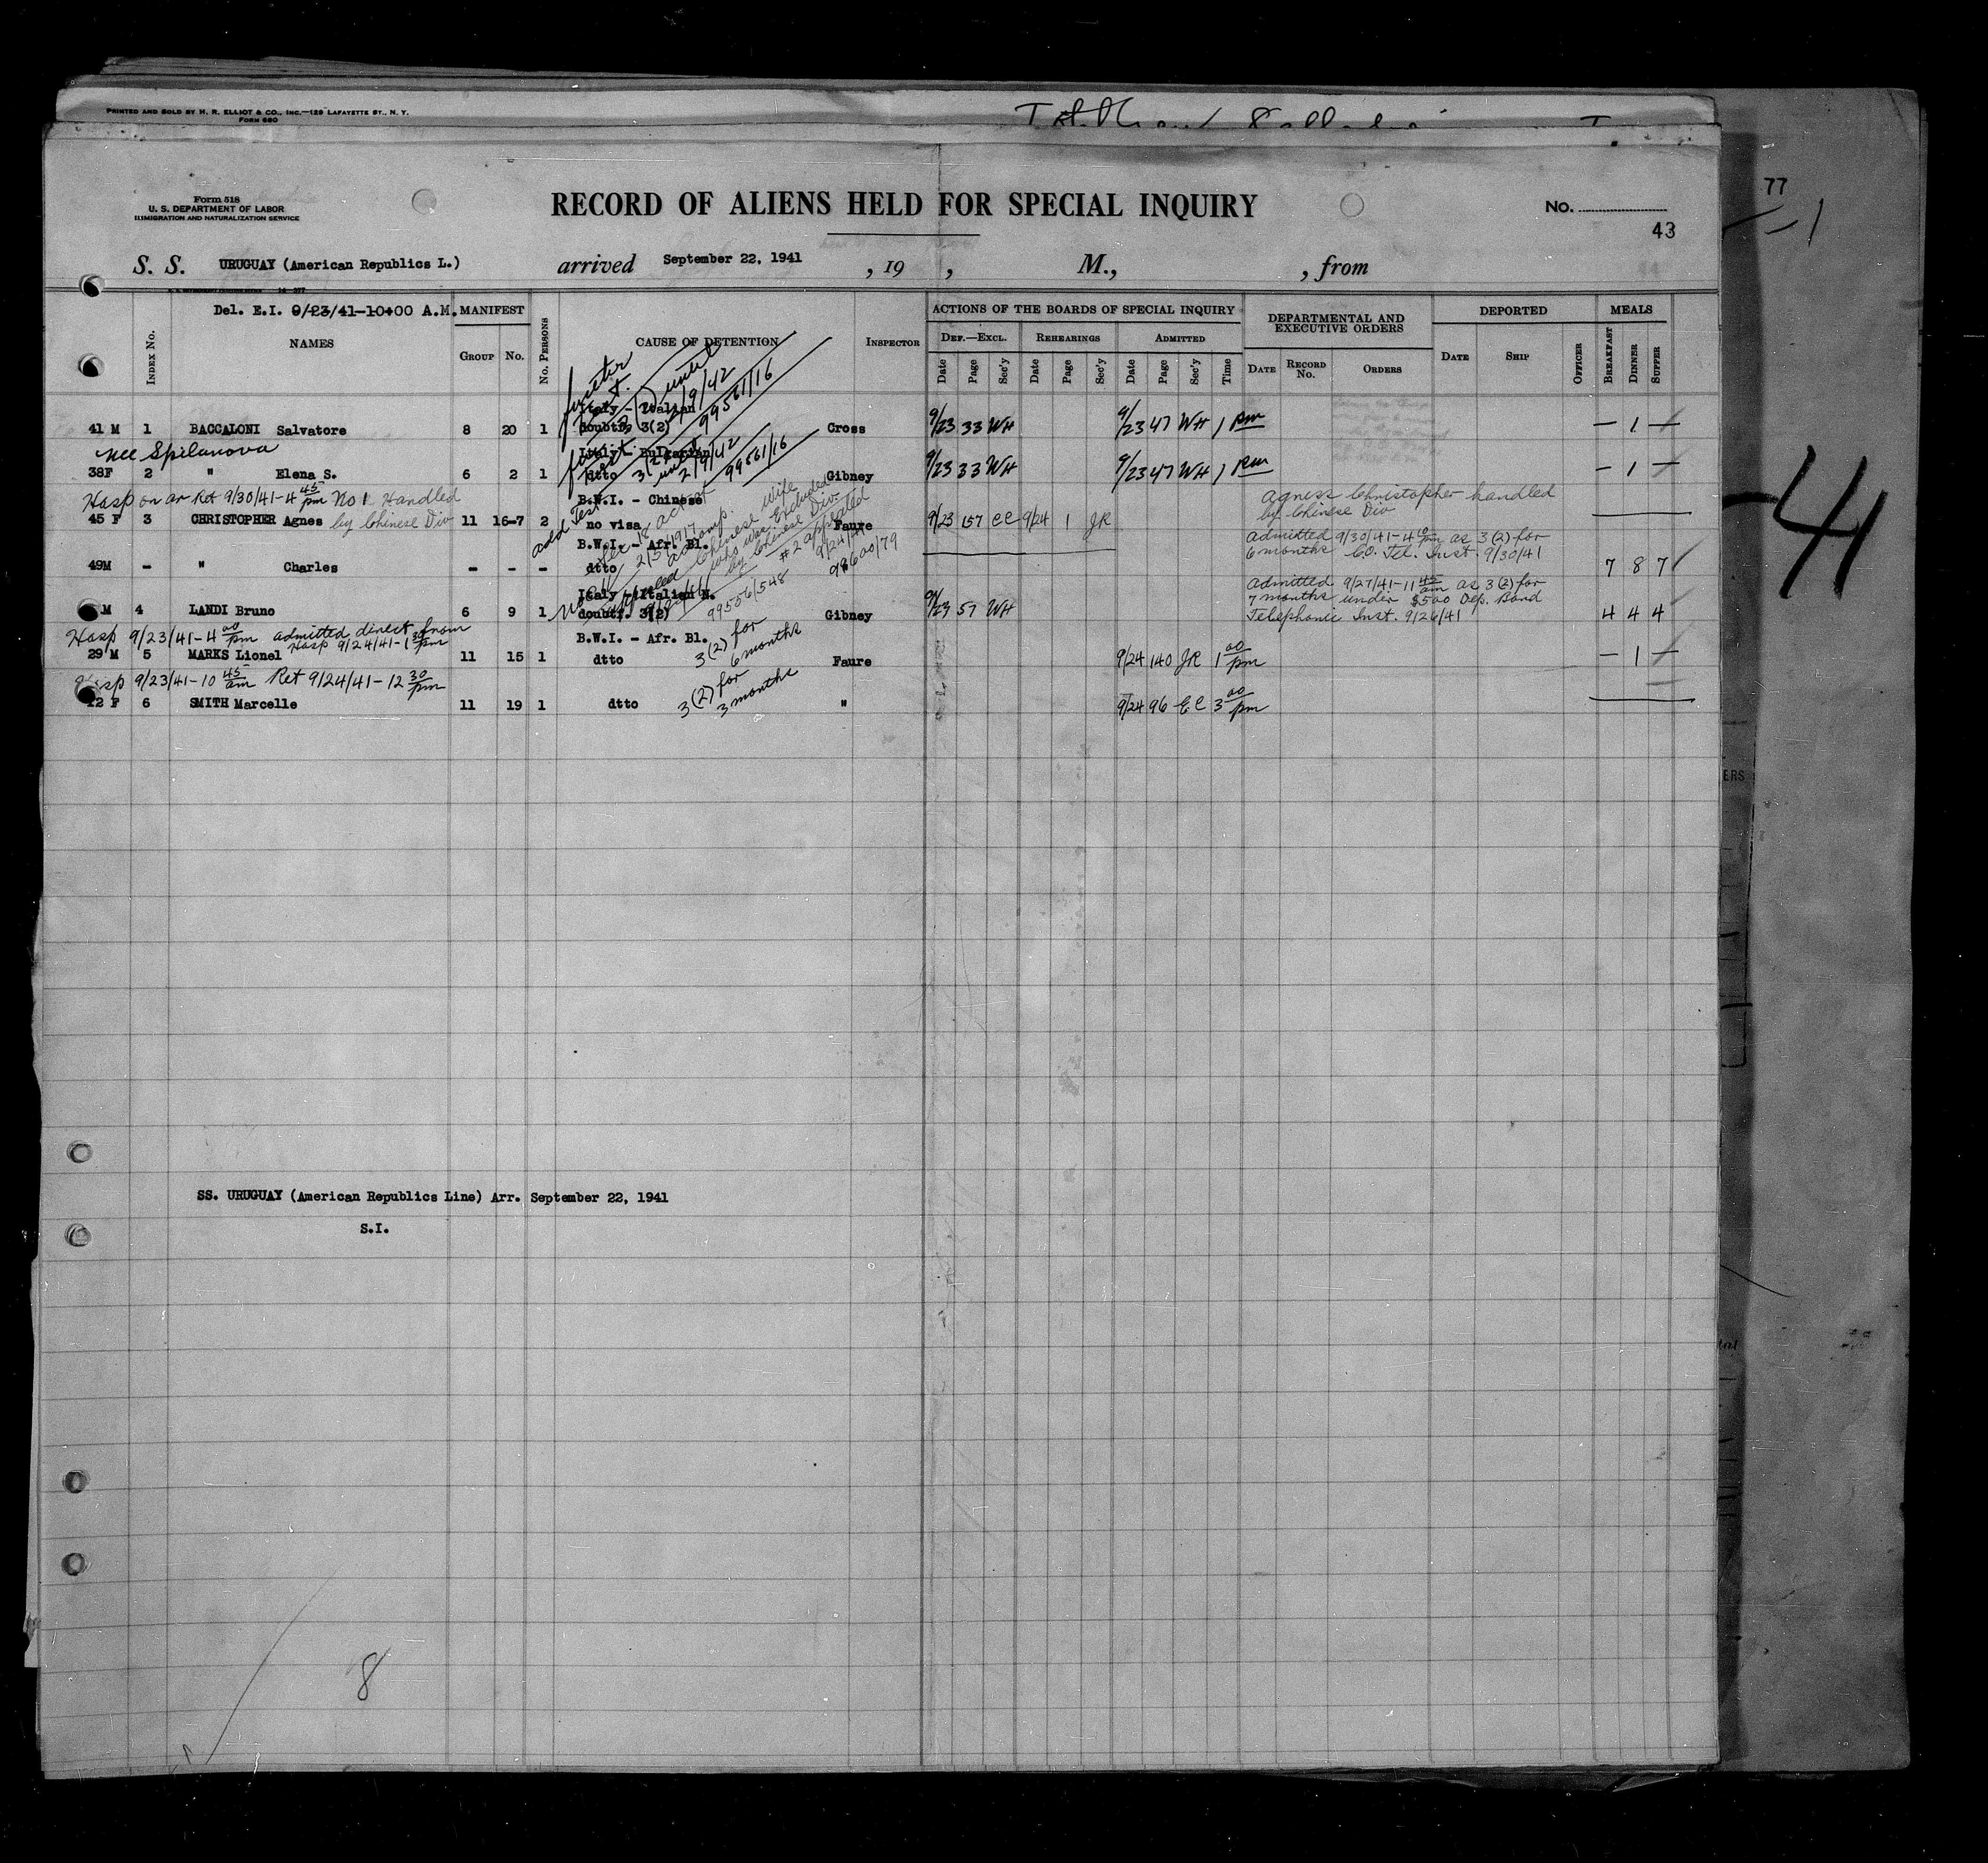 PRINTED AND SOLD BY H. R. ELLIOT & CO., INC.—129 LAFAYETTE ST., N. Y.
FORM 680
77
Form 518
U. S. DEPARTMENT OF LABOR
IMMIGRATION AND NATURALIZATION SERVICE
RECORD OF ALIENS HELD FOR SPECIAL INQUIRY
No.
43
S. S. URUGUAY (American Republics L.) arrived September 22, 1941 , 19 , M., , from
Del. E.I. 9/23/41-10:00 A.M. MANIFEST ACTIONS OF THE BOARDS OF SPECIAL INQUIRY DEPARTMENTAL AND EXECUTIVE ORDERS DEPORTED MEALS
INDEX NO. NAMES GROUP NO. NO. PERSONS CAUSE OF DETENTION INSPECTOR DEF.—EXCL. REHEARINGS ADMITTED
Date Page Sec'y Date Page Sec'y Date Page Sec'y Time DATE RECORD NO. ORDERS DATE SHIP OFFICER BREAKFAST DINNER SUPPER
until 2/9/42 99561/16
Italy - Italian
41 M 1 BACCALONI Salvatore 8 20 1 doubtf. 3(2) Cross 9/23 33 WH 9/23 47 WH 1 pm — 1 —
nee Spilanova
Italy - Bulgarian
38F 2 " Elena S. 6 2 1 dtto 3(2) until 2/9/42 99561/16 Gibney 9/23 33 WH 9/23 47 WH 1 pm — 1 —
Hosp on ar Ret 9/30/41-4 45 pm No 1 Handled by Chinese Div
B.W.I. - Chinese
45 F 3 CHRISTOPHER Agnes 11 16-7 2 no visa Faure 9/23 157 CC 9/24 1 JR
Agness Christopher handled
by Chinese Div
B.W.I. - Afr. Bl.
49M - " Charles - - - dtto 7 8 7
accomp. Chinese wife
who was excluded
by Chinese Div.
#2 appealed
9/24/41
98600/79
Admitted 9/30/41-4 pm as 3(2) for
6 months Co. Tel. Inst. 9/30/41
Italy - Italian N.
M 4 LANDI Bruno 6 9 1 doubtf. 3(2) 99556/548 Gibney 9/23 57 WH 4 4 4
Admitted 9/27/41-11 45 am as 3(2) for
7 months under $500 Dep. Bond
Telephonic Inst. 9/26/41
Hosp 9/23/41-4 00 pm admitted direct from
Hosp 9/24/41-1 30 pm
B.W.I. - Afr. Bl.
29 M 5 MARKS Lionel 11 15 1 dtto 3(2) for 6 months Faure 9/24 140 JR 1 00 pm — 1 —
Hosp 9/23/41-10 45 am Ret 9/24/41-12 30 pm
12 F 6 SMITH Marcelle 11 19 1 dtto 3(2) for 3 months " 9/24 96 EC 3 00 pm
44
SS. URUGUAY (American Republics Line) Arr. September 22, 1941
S.I.
8